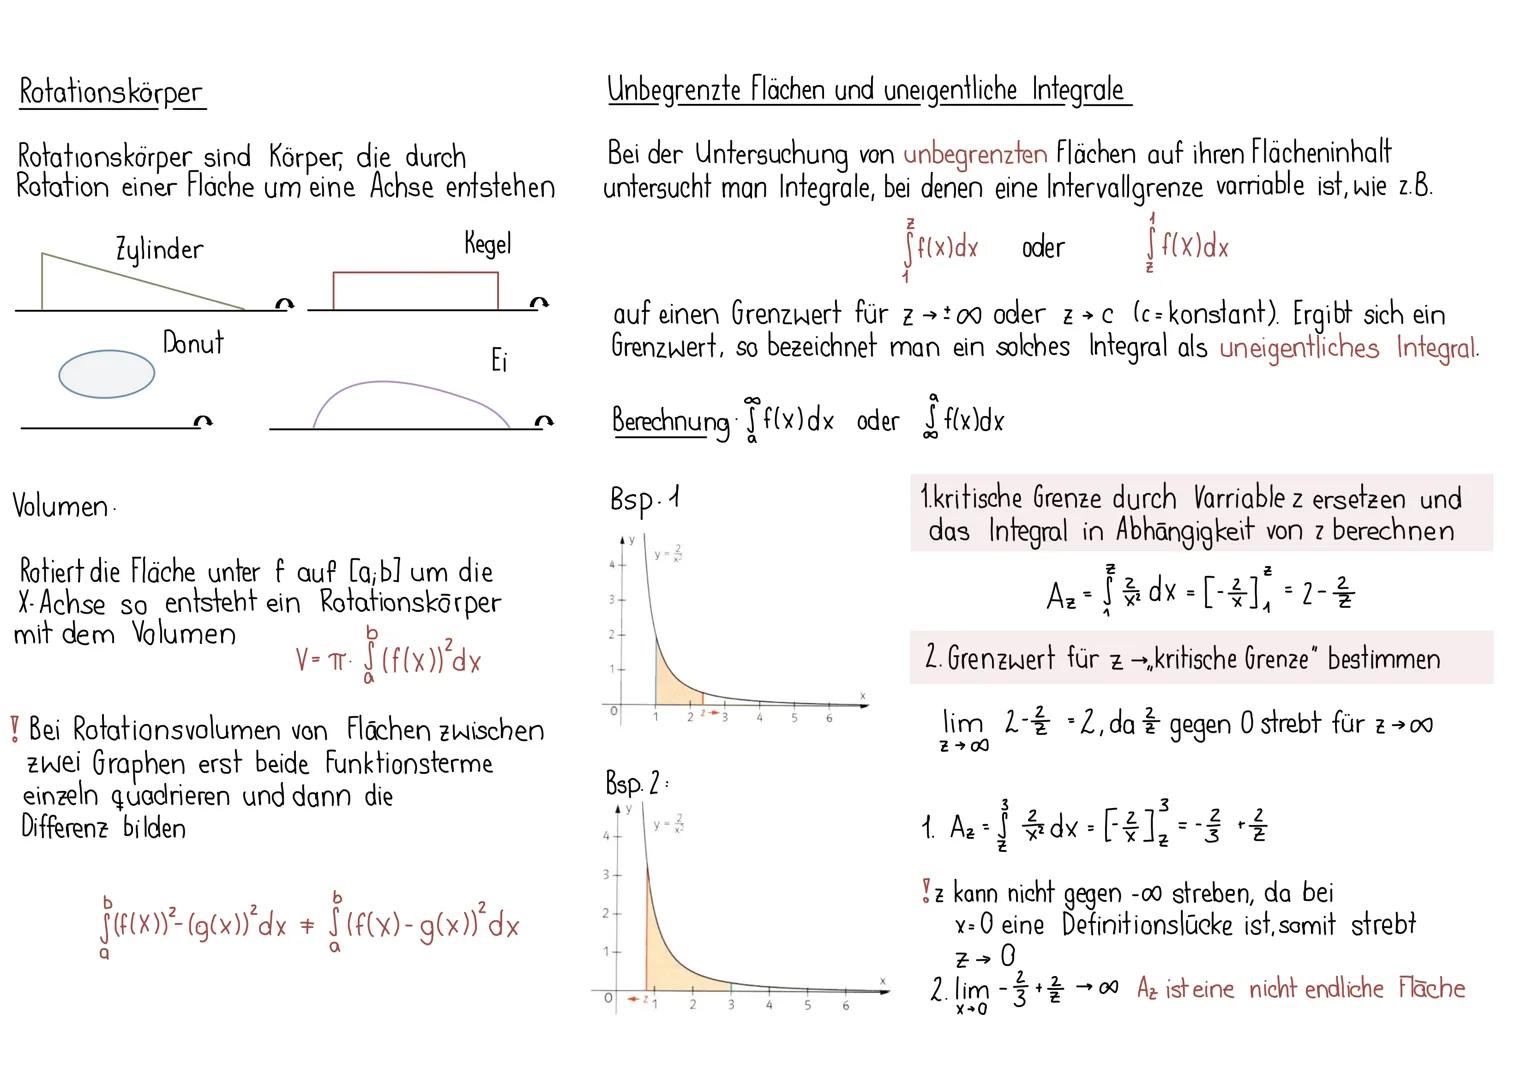 Rotationskörper
Rotationskörper sind Körper, die durch
Rotation einer Fläche um eine Achse entstehen
Zylinder
Kegel
Donut
Ei
Volumen:
Rotiert die Fläche unter f auf [a;b] um die
X-Achse so entsteht ein Rotationskörper
mit dem Volumen
V = π · ∫_a^b (f(x))² dx
! Bei Rotationsvolumen von Flächen zwischen
zwei Graphen erst beide Funktionsterme
einzeln quadrieren und dann die
Differenz bilden
∫_a^b (f(x))² - (g(x))² dx ≠ ∫_a^b (f(x) - g(x))² dx
Unbegrenzte Flächen und uneigentliche Integrale
Bei der Untersuchung von unbegrenzten Flächen auf ihren Flächeninhalt
untersucht man Integrale, bei denen eine Intervallgrenze varriable ist, wie z.B.
∫_1^z f(x)dx oder ∫_z^1 f(x)dx
auf einen Grenzwert für z → ±∞ oder z → c (c = konstant). Ergibt sich ein
Grenzwert, so bezeichnet man ein solches Integral als uneigentliches Integral.
Berechnung: ∫_a^∞ f(x)dx oder ∫_∞^a f(x)dx
Bsp. 1
y
y = 2/x²
4
3
2
1
0 1 2 z 3 4 5 6 x
1.kritische Grenze durch Varriable z ersetzen und
das Integral in Abhängigkeit von z berechnen
A_z = ∫_1^z 2/x² dx = [-2/x]_1^z = 2 - 2/z
2. Grenzwert für z → „kritische Grenze" bestimmen
lim_{z→∞} 2 - 2/z = 2, da 2/z gegen 0 strebt für z → ∞
Bsp. 2:
y
y = 2/x²
4
3
2
1
0 z 1 2 3 4 5 6 x
1. A_z = ∫_z^3 2/x² dx = [-2/x]_z^3 = -2/3 + 2/z
! z kann nicht gegen -∞ streben, da bei
x=0 eine Definitionslücke ist, somit strebt
z → 0
2. lim_{x→0} -2/3 + 2/z → ∞ A_z ist eine nicht endliche Fläche